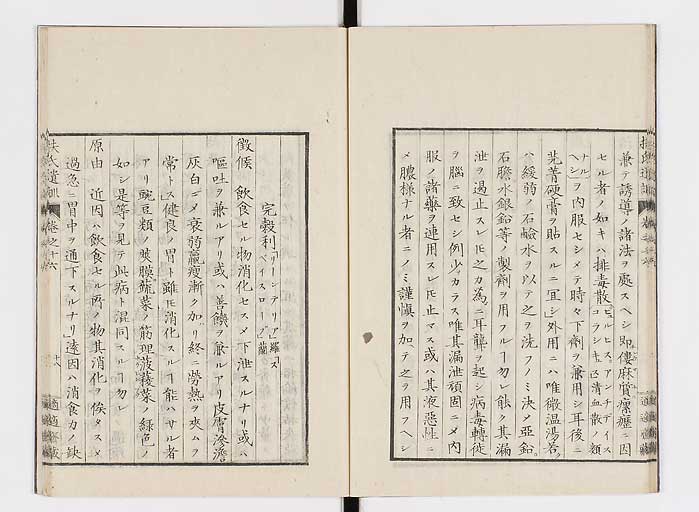 兼テ誘導ノ諸法ヲ処スヘシ即僂麻質瘰癧ニ因
セル者ノ如キハ排毒散ピルヒス、アンチデイスコラシキ及清血散ノ類
ナルヘシヲ内服セシメテ時々下剤ヲ兼用シ耳後ニ
芫菁硬膏ヲ貼スルニ宜シ外用ニハ唯微温湯若
ハ緩弱ノ石鹸水ヲ以テ之ヲ洗フノミ決メ亜鉛
石膽水銀鉛等ノ製剤ヲ用フルヿ勿レ能ク其漏
泄ヲ遏止スレ𪜈之カ為ニ耳聾ヲ起シ病毒轉徙
ヲ脳ニ致セシ例少カラス唯其漏泄頑固ニメ内
服ノ諸藥ヲ連用スレ𪜈止マス或ハ其液悪性ニ
メ膿様ナル者ニノミ謹慎ヲ加テ之ヲ用フヘシ
扶氏遺訓 巻之十六
完穀利
徴候 飲食セル物消化セスメ下泄スルナリ或ハ
嘔吐ヲ兼ルアリ或ハ善饑ヲ兼ルアリ皮膚滲澹
灰白ニメ衰弱羸痩漸ク加リ終ニ労熱ヲ夾ムヲ
常トス健良ノ胃ト雖𪜈消化スルヿ能ハサル者
アリ豌豆類ノ莢膜蔬菜ノ筋理菠薐菜ノ緑色ノ
如シ是等ヲ見テ此病ト混同スルヿ勿レ
原由 近因ハ飲食セル所ノ物其消化ヲ候タスメ
過急ニ胃中ヲ通下スルナリ遠因ハ消食力ノ缺